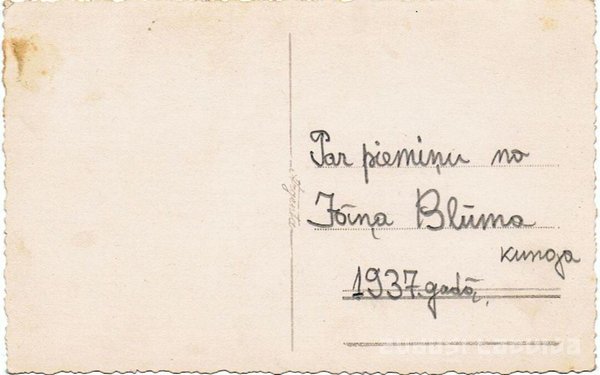 Par piemiņu no
Jāņa Blūma
kunga
1937. gadā.